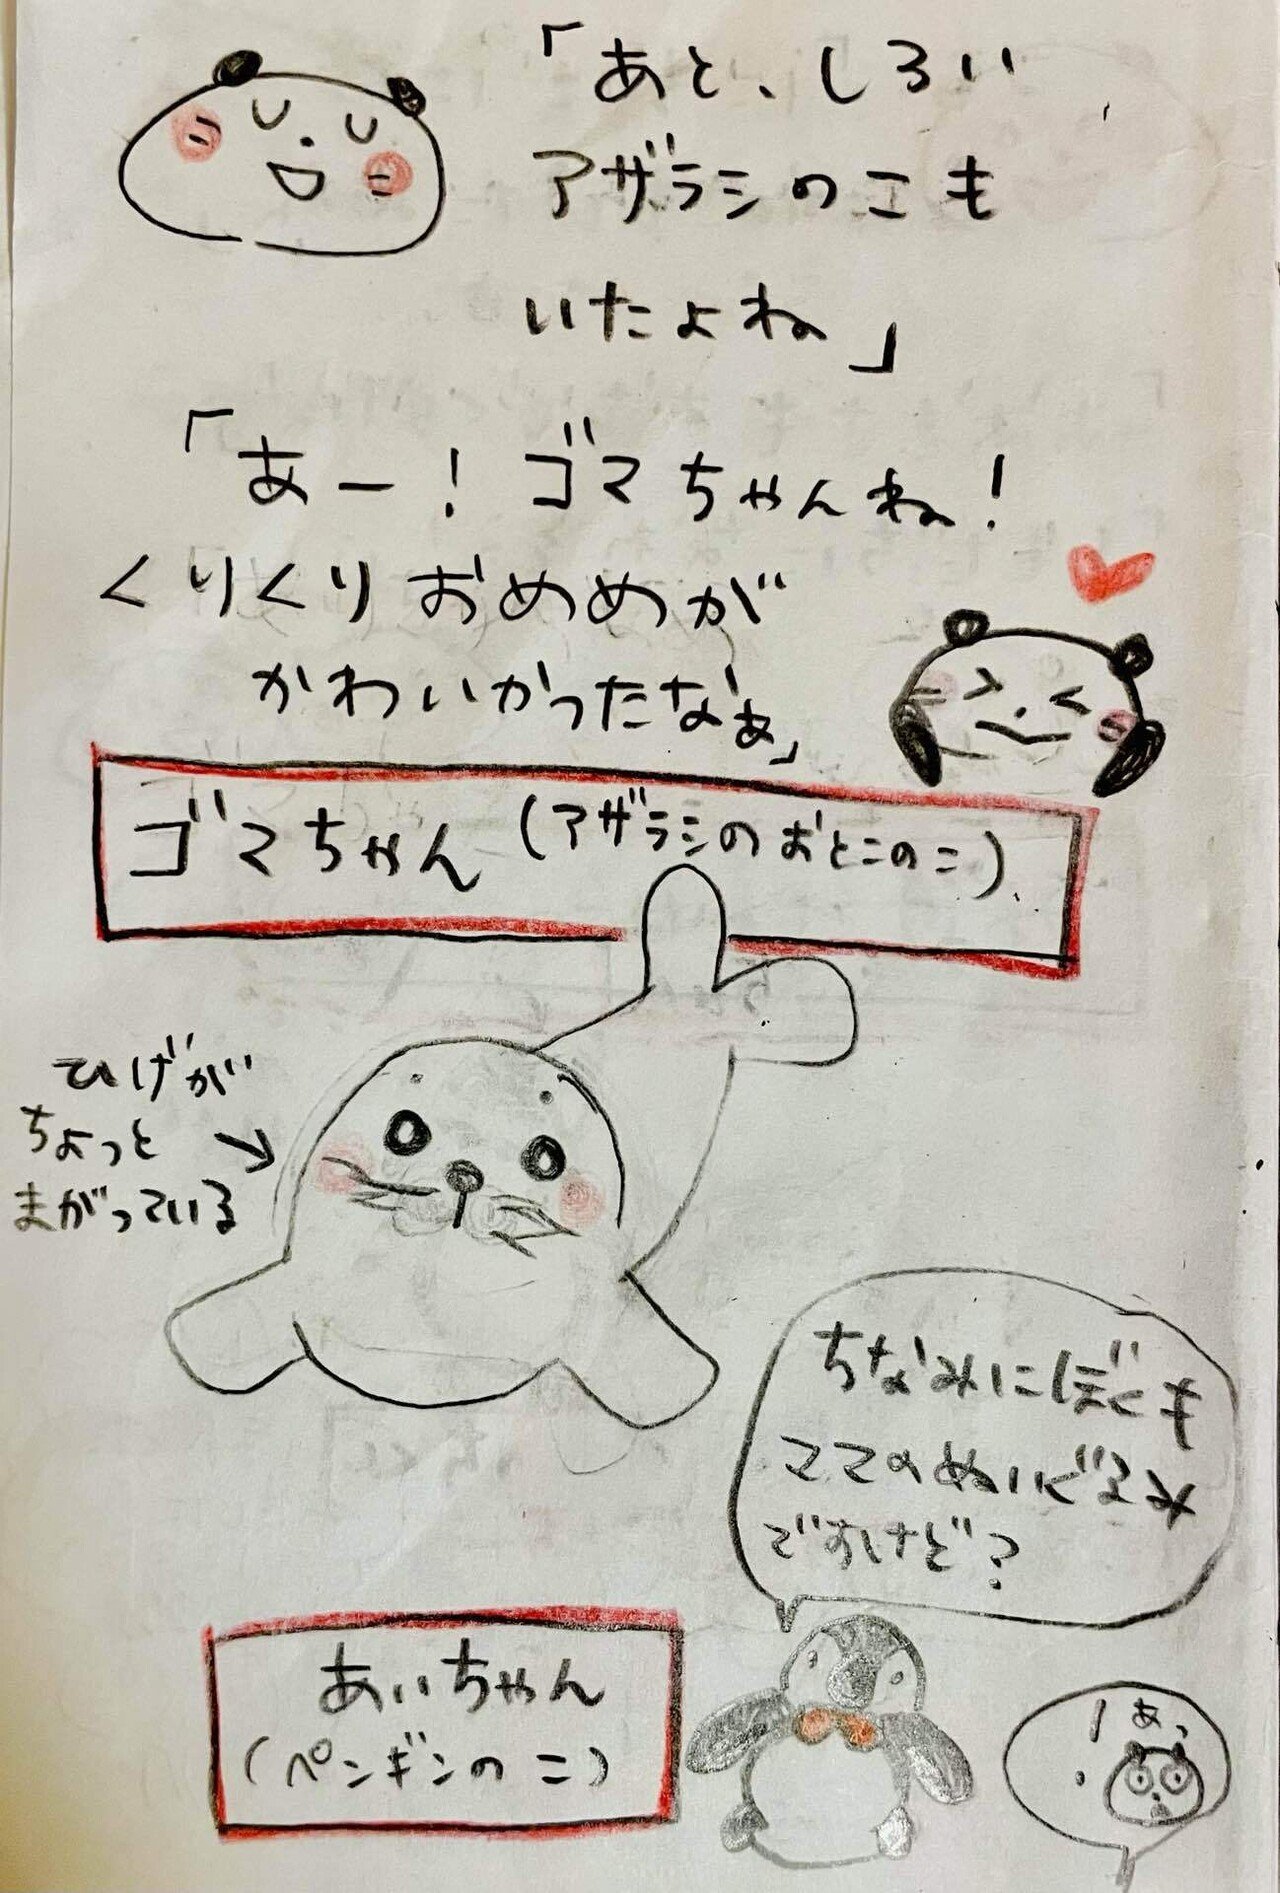 「あと、しろい
アザラシのこも
いたよね」
「あー！ゴマちゃんね！
くりくりおめめが
かわいかったなぁ」
ゴマちゃん(アザラシのおとこのこ)
ひげが
ちょっと
まがっている
ちなみにぼくも
ママのぬいぐるみ
ですけど？
あいちゃん
(ペンギンのこ)
あっ
！